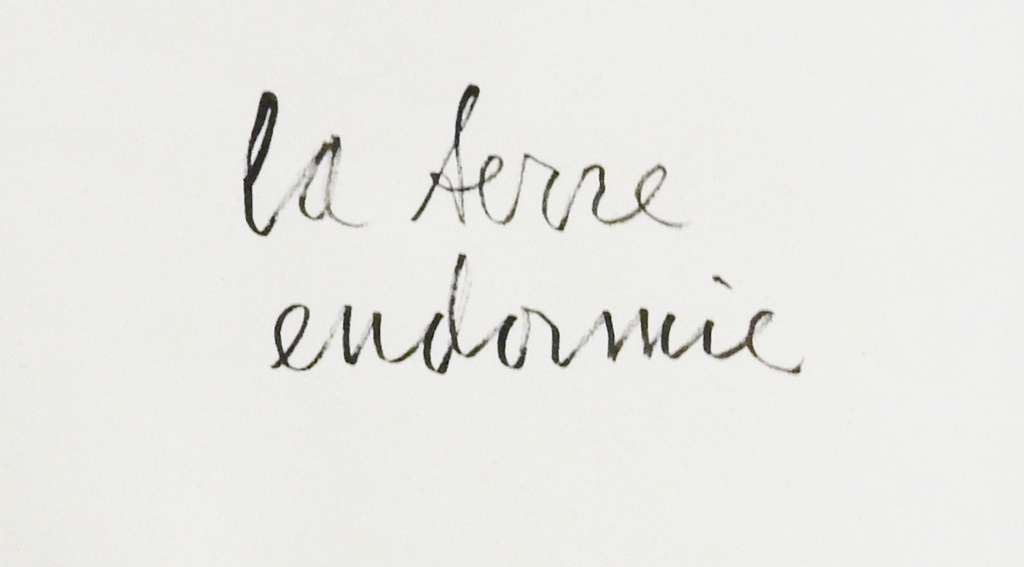 la terre
endormie